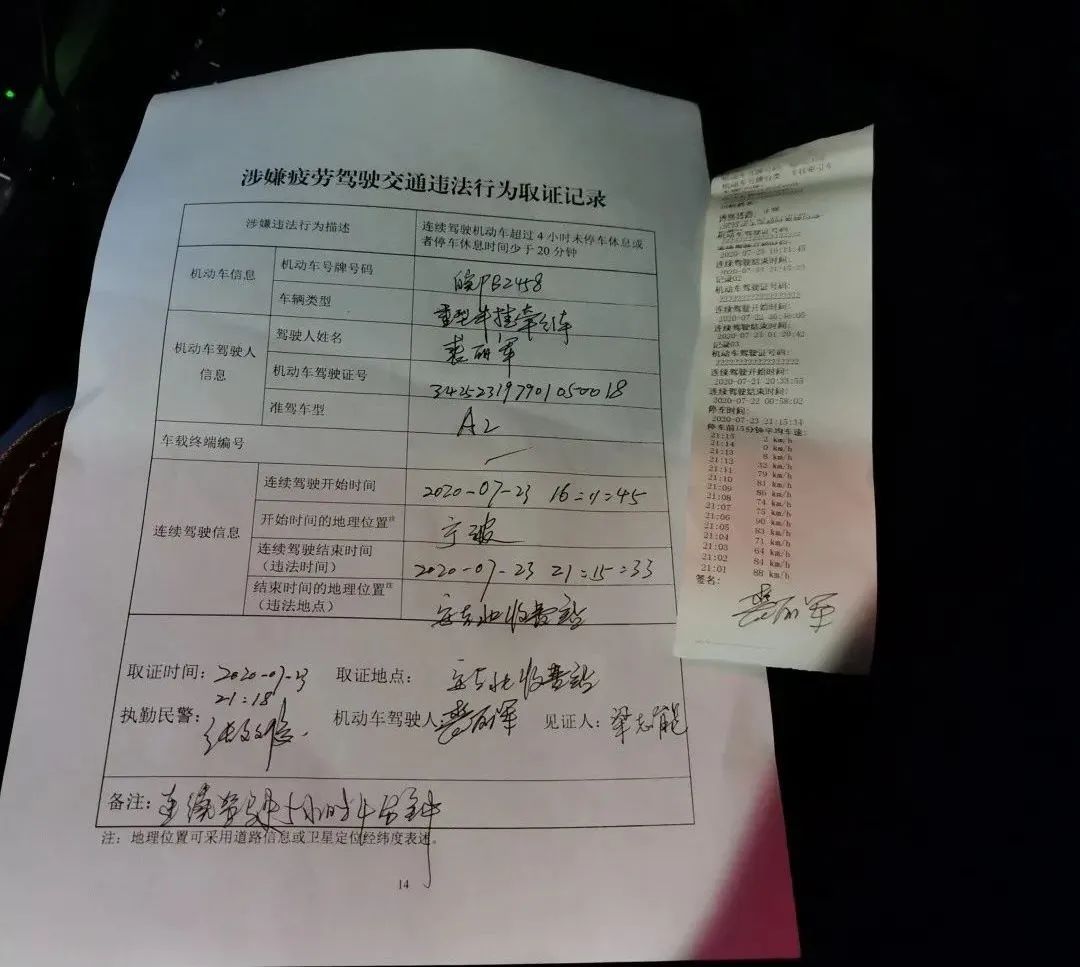 涉嫌疲劳驾驶交通违法行为取证记录
涉嫌违法行为描述
连续驾驶机动车超过4小时未停车休息或
者停车休息时间少于20分钟
机动车信息
机动车号牌号码
皖PB2458
车辆类型
重型半挂牵引车
机动车驾驶人
信息
驾驶人姓名
丽军
机动车驾驶证号
342523197901050018
准驾车型
A2
车载终端编号
连续驾驶信息
连续驾驶开始时间
2020-07-23 16:11:45
开始时间的地理位置注
宁波
连续驾驶结束时间
(违法时间)
2020-07-23 21:15:33
结束时间的地理位置注
(违法地点)
北收费站
取证时间:2020-07-23
21:18
取证地点:
北收费站
执勤民警:
机动车驾驶人:
丽军
见证人:梁志能
备注:连续驾驶5小时4分钟
注:地理位置可采用道路信息或卫星定位经纬度表述。
14
机动车驾驶证号码:
连续驾驶结束时间:
记录02
机动车驾驶证号码:
连续驾驶开始时间:
连续驾驶结束时间:
记录03
机动车驾驶证号码:
连续驾驶开始时间:
2020-07-21 20:33:55
连续驾驶结束时间:
2020-07-22 00:58:02
停车时间:
2020-07-23 21:15:34
停车前15分钟平均车速:
21:15 2 km/h
21:14 0 km/h
21:13 8 km/h
21:12 32 km/h
21:11 79 km/h
21:10 81 km/h
21:09 86 km/h
21:08 74 km/h
21:07 75 km/h
21:06 90 km/h
21:05 83 km/h
21:04 71 km/h
21:03 64 km/h
21:02 84 km/h
21:01 88 km/h
签名:
丽军